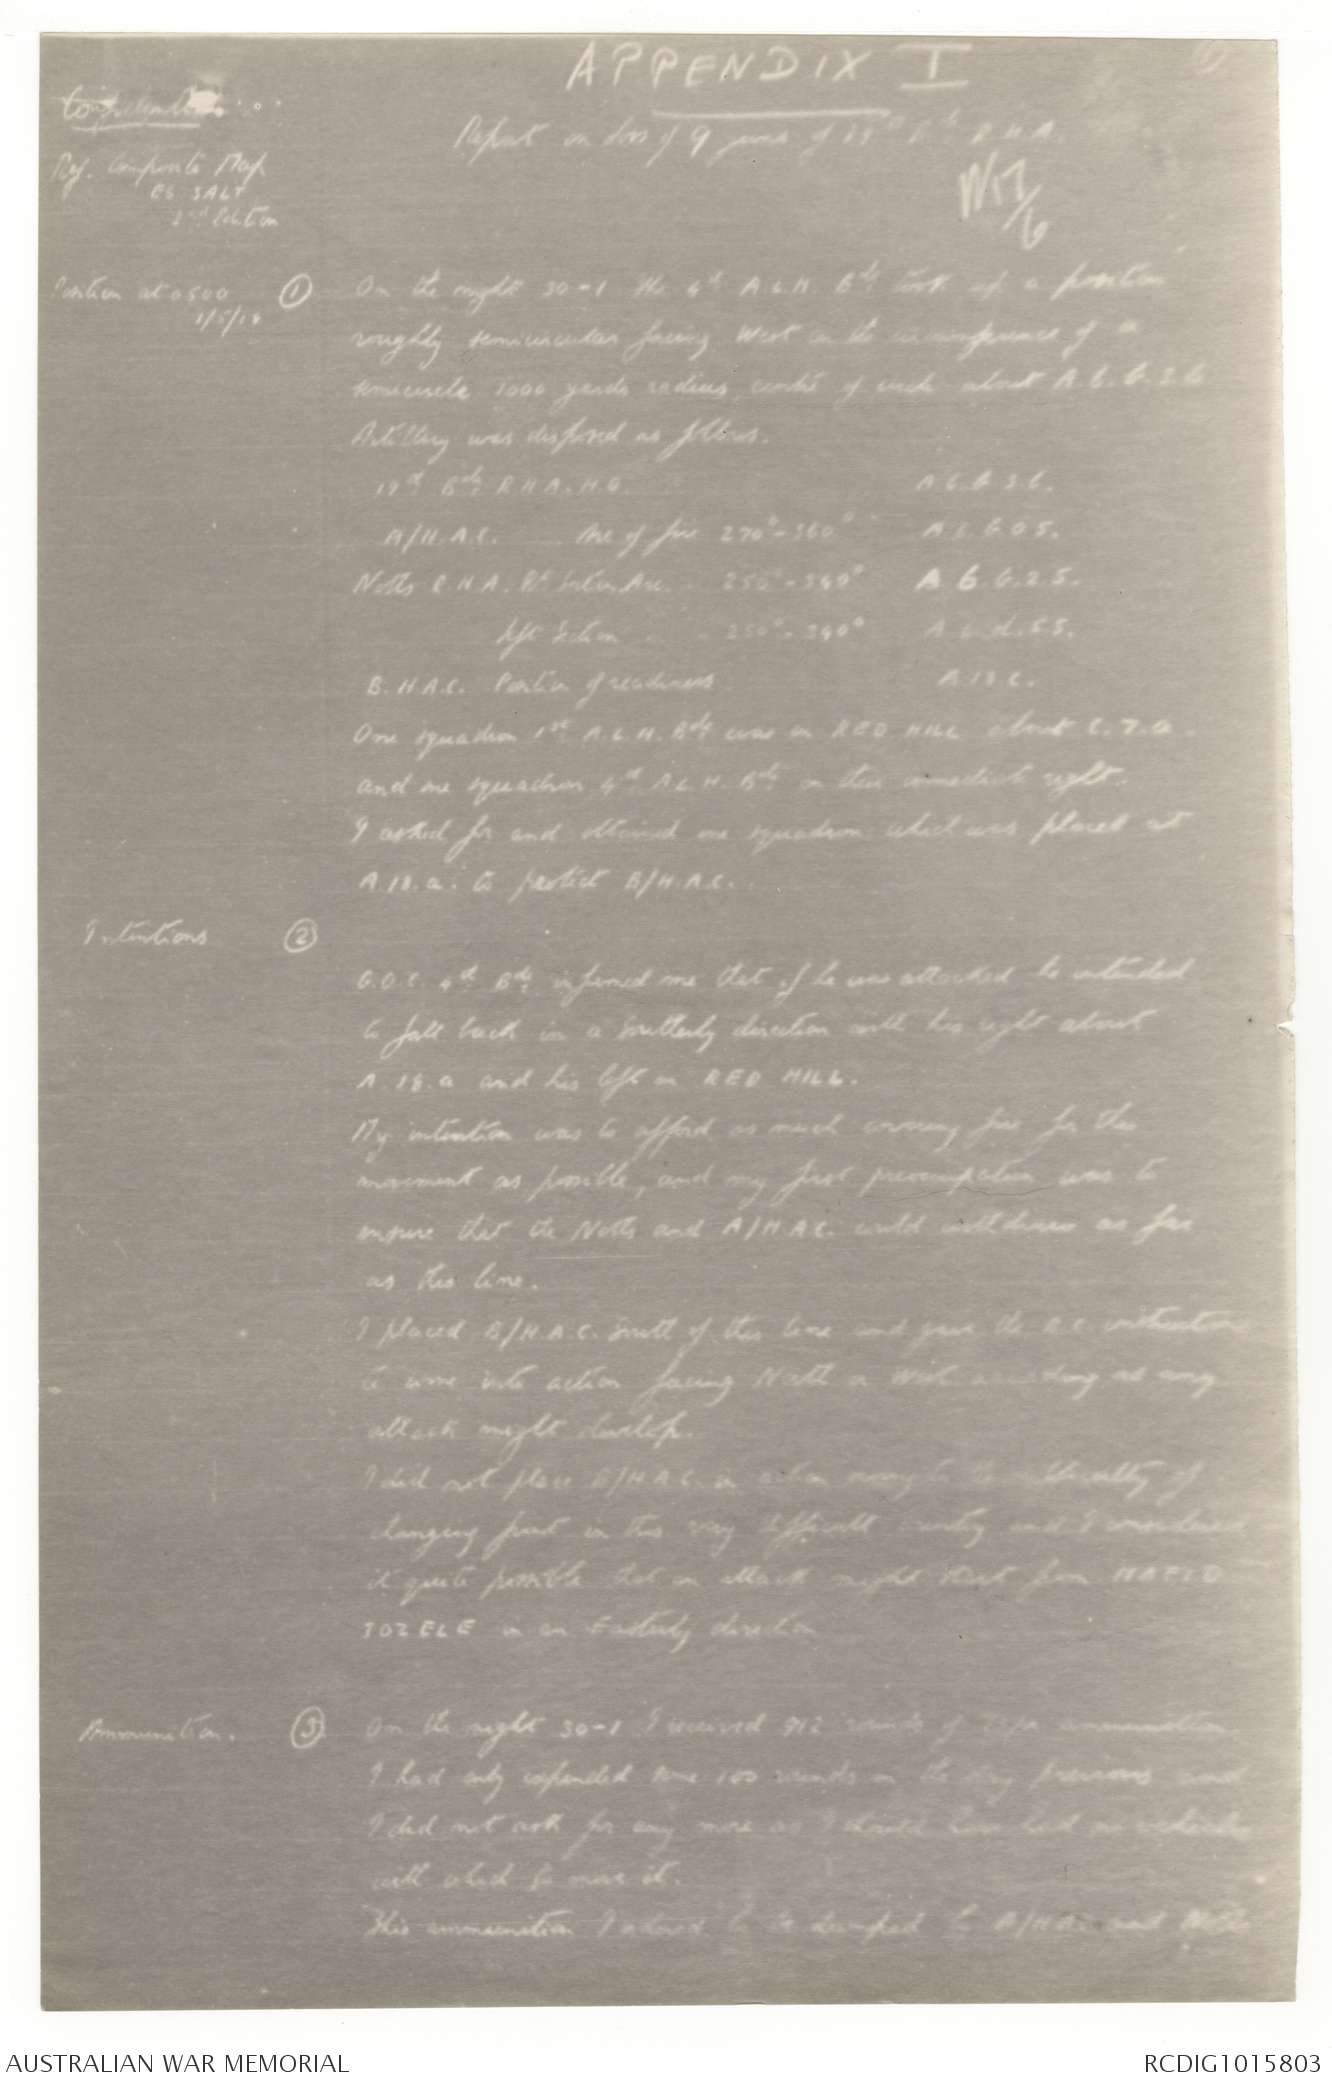 APPENDIX I
Confidential
Report on Loss of 9 guns of 19th Bde R.H.A.
Ref. Composite Map
ES SALT
2nd Edition
W17/6
Position at 0500
1/5/18
① On the night 30-1 the 4th A.L.H. Bde took up a position
roughly semicircular facing West on the circumference of a
semicircle 3000 yards radius, centre of circle about A.6.b.3.6
Artillery was disposed as follows.
19th Bde R.H.A. H.Q. A.6.b.3.6.
A/H.A.C. Arc of fire 270° - 360° A.6.b.0.5.
Notts R.H.A. Rt Section Arc 250° - 340° A.6.b.2.5.
Left Section 250° - 340° A.6.d.5.5.
B.H.A.C. Position of readiness A.18.c.
One squadron 1st A.L.H. Bde was on RED HILL about C.7.a.
and one squadron 4th A.L.H. Bde on their immediate right.
I asked for and obtained one squadron which was placed at
A.18.a. to protect B/H.A.C.
Intentions ②
G.O.C. 4th Bde informed me that if he was attacked he intended
to fall back in a Southerly direction with his right about
A.18.a and his left on RED HILL.
My intention was to afford as much covering fire for this
movement as possible, and my first preoccupation was to
ensure that the Notts and A/H.A.C. could withdraw as far
as this line.
I placed B/H.A.C. South of this line and gave the B.C. instructions
to come into action facing North or West according as any
attack might develop.
I did not place B/H.A.C. in action owing to the difficulty of
changing front in this very difficult country and I considered
it quite possible that an attack might start from MAFID
JOZELE in an Easterly direction
Ammunition. ③ On the night 30-1 I received 912 rounds of ammunition.
I had only expended some 100 rounds on the day previous and
I did not ask for any more as I should have had no vehicles
with which to move it.
This ammunition I ordered to be dumped by A/HAC and Notts
AUSTRALIAN WAR MEMORIAL
RCDIG1015803